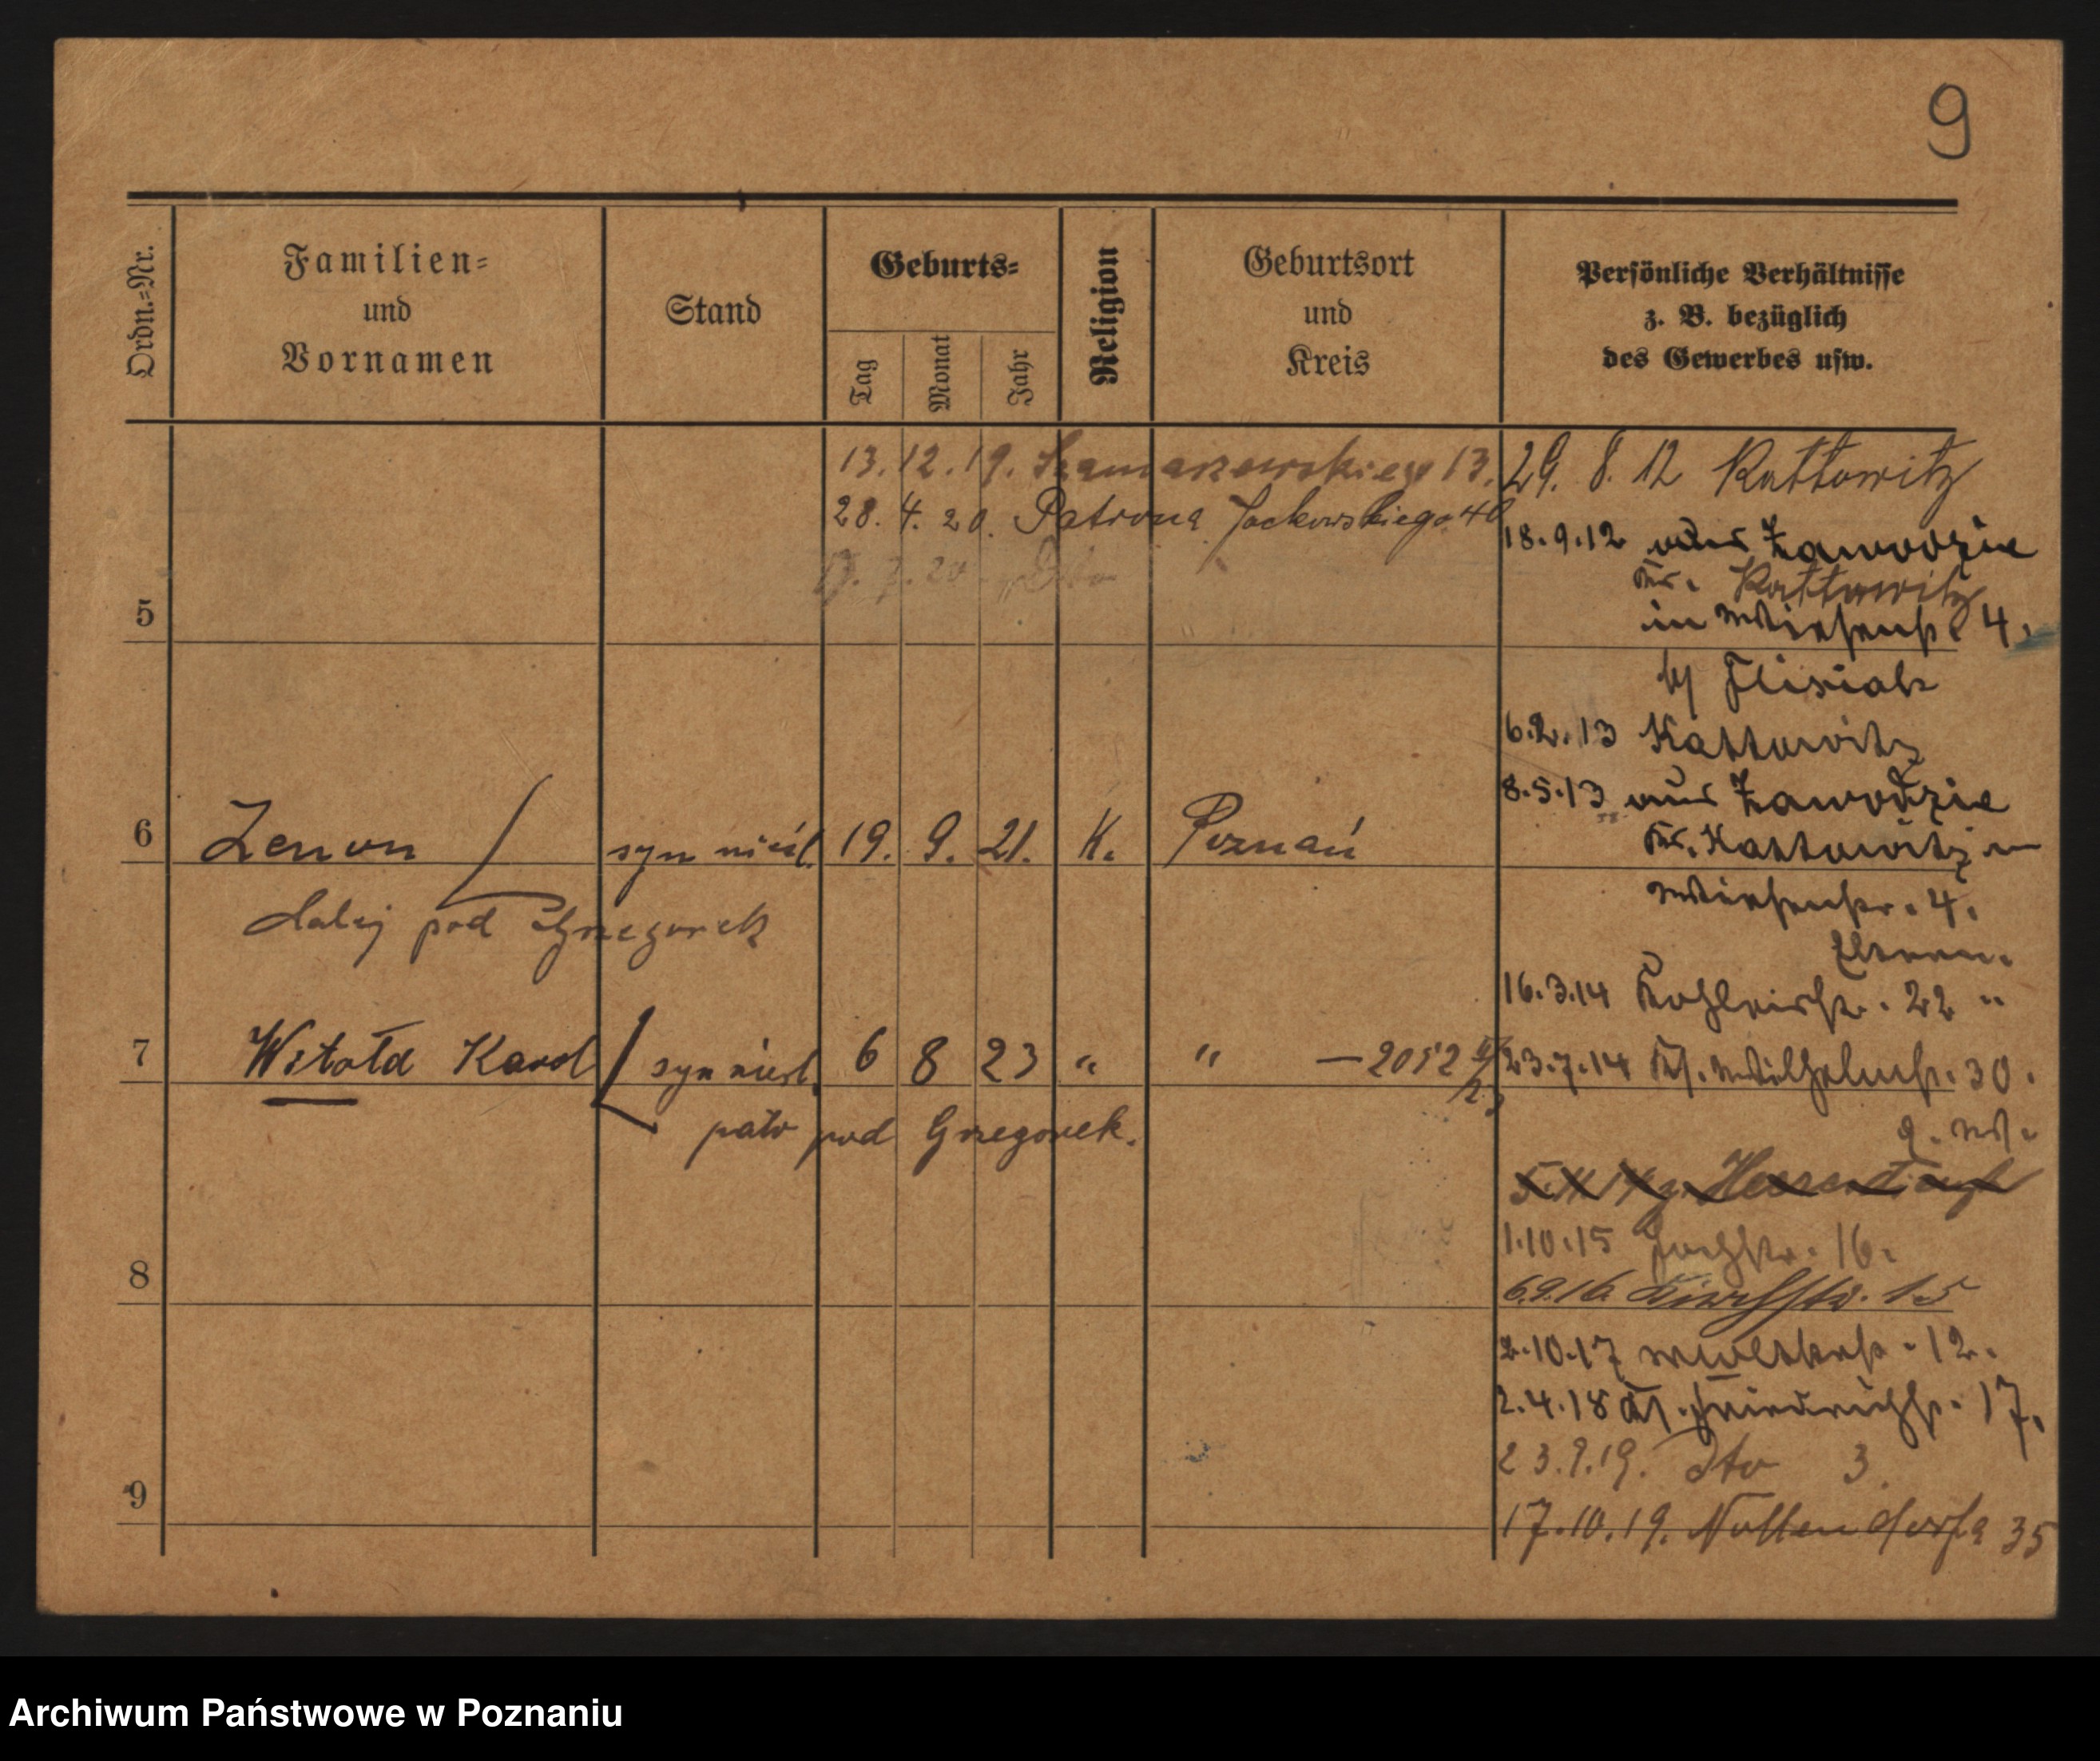 9
Ordn.-Nr.
Familien-
und
Vornamen
Stand
Geburts-
Tag
Monat
Jahr
Religion
Geburtsort
und
Kreis
Persönliche Verhältnisse
z. B. bezüglich
des Gewerbes usw.
13. 12. 19. Szamarzewskiego 13.
28. 4. 20. Patrona Jackowskiego 40
7. 20
29. 8. 12 Kattowitz
18.9.12 aus Zawodzie
Kr. Kattowitz
in Wiesenstr. 4.
5
b/ Flisiak
6.2.13 Kattowitz
8.5.13 aus Zawodzie
Kr. Kattowitz in
6 Zenon syn nieśl. 19. 9. 21. K. Poznań
Wiesenstr. 4.
dalej pod Grzegorek
Eltern.
16.3.14 22 "
7 Witold Karol syn nieśl. 6 8 23 " " — 2052
23.7.14 Kl. Wilhelmstr. 30.
pato pod Grzegorek.
1.10.15 16.
8
6.9.16. Kirchstr. 15
2.10.17 Moltkestr. 12.
2.4.18 Kl. Friedrichstr. 17.
23.9.19. dto 3.
9
17.10.19. Nollendorfa 35
Archiwum Państwowe w Poznaniu